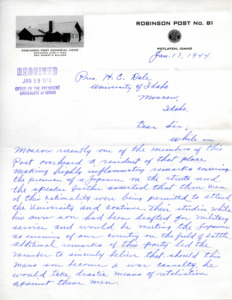 ROBINSON POST No. 81
POTLATCH, IDAHO
ROBINSON POST MEMORIAL HOME
RECEIVED
JAN 18 1944
OFFICE OF THE PRESIDENT
UNIVERSITY OF IDAHO
Jan. 17, 1944
Pres. H. C. Dale,
University of Idaho
Moscow,
Idaho.
Dear Sir;
While in
Moscow recently one of the members of this
Post overheard a resident of that place
making highly inflammatory remarks
the presence of Japanese on the streets and
the speaker further asserted that these men
of this nationality were being permitted to attend
the University and continue their studies while
his own son had been drafted for military
service and would be meeting the Japanese
as enemies of our country on the field of battle
additional remarks of this party led the
Member to believe that should this
Mans son become a war casualty he
would take drastic means of retaliation
against these men.